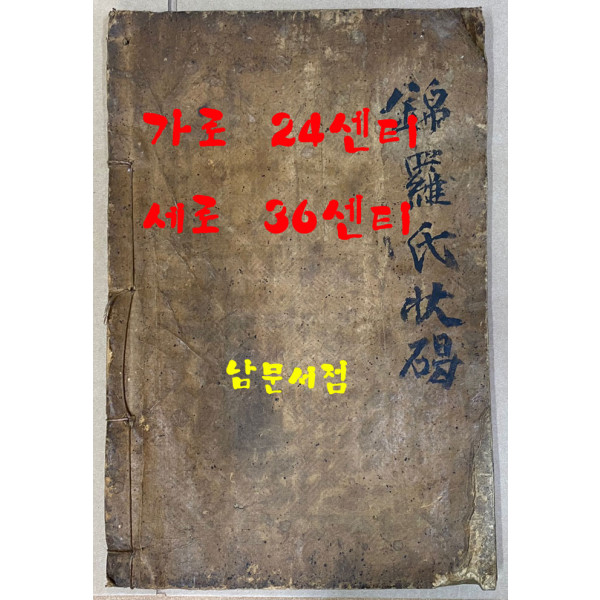 가로 24센티
세로 36센티
남문서점
錦羅氏狀碣